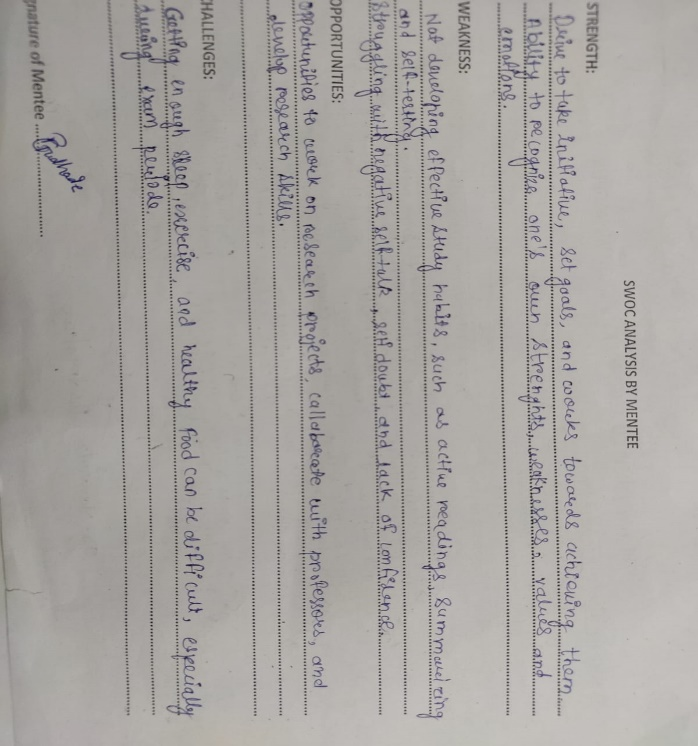 SWOC ANALYSIS BY MENTEE
STRENGTH:
Drive to take initiative, set goals, and woorks towards achieving them
Ability to recognize one's own strenghts, weaknesses, values and
emotions.
WEAKNESS:
Not developing effective study habits, such as active readings summarizing
and self-testing.
Struggling with negative self-talk, self doubt, and lack of confidence.
OPPORTUNITIES:
opportunities to work on research projects, callaborate with professors, and
develop research skills.
HALLENGES:
Getting enough sleep, exercise, and healthy food can be difficult, especially
during exam periods.
gnature of Mentee